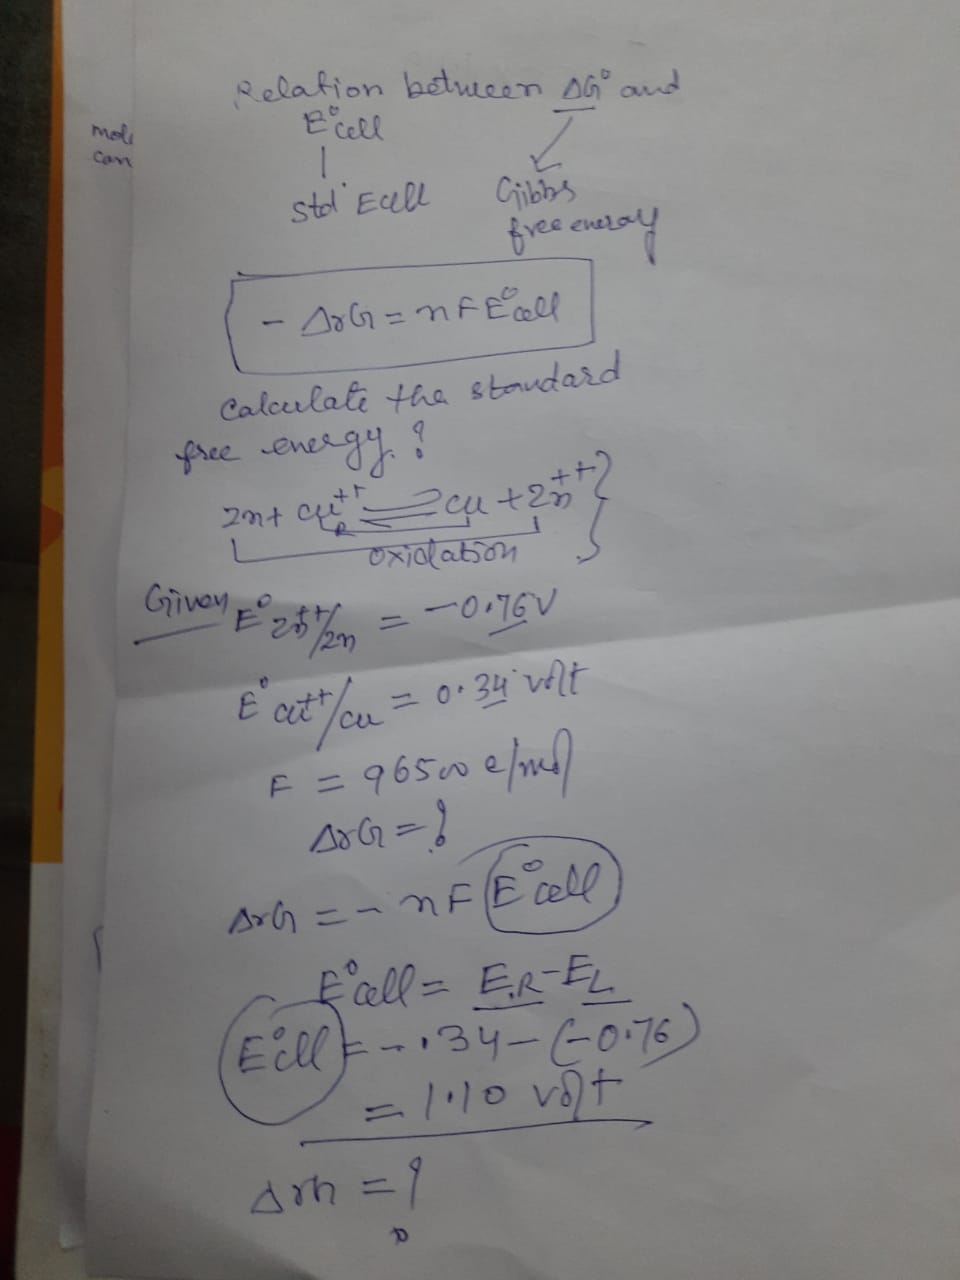 Relation between ΔG° and
E°cell
mole
can
std. Ecell
Gibbs
free energy
- ΔrG = nFE°cell
Calculate the standard
free energy. ?
Zn + Cu++ ⇌ Cu + Zn++}
R
oxidation
Given E° Zn++/Zn = -0.76V
E° Cu++/Cu = 0.34 volt
F = 96500 c/mol
ΔrG = ?
ΔrG = - nF E°cell
E°cell = ER-EL
E°cell = -.34-(-0.76)
= 1.10 volt
ΔrG = ?